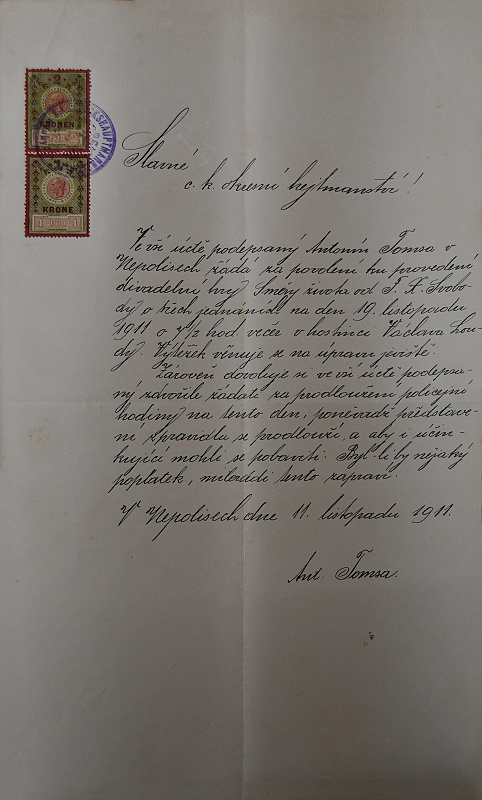 2
KRONEN
KRONE
1 1
Slavné
c. k. okresní hejtmanství!
Ve vší úctě podepsaný Antonín Tomsa v
Nepolisech žádá za povolení ku provedení
divadelní hry Směry života od F. X. Svobo-
dy o třech jednáních na den 19. listopadu
1911 o 7 1/2 hod večer v hostinci Václava Lou-
dy. Výtěžek věnuje se na úpravu jeviště.
Zároveň dovoluje si ve vší úctě podepsa-
ný zdvořile žádati za prodloužení policejní
hodiny na tento den, poněvadž představe-
ní zpravidla se prodlouží, a aby i účin-
kující mohli se pobaviti. Byl-li by nějaký
poplatek, milerádi tento zapraví.
V Nepolisech dne 11. listopadu 1911.
Ant. Tomsa.